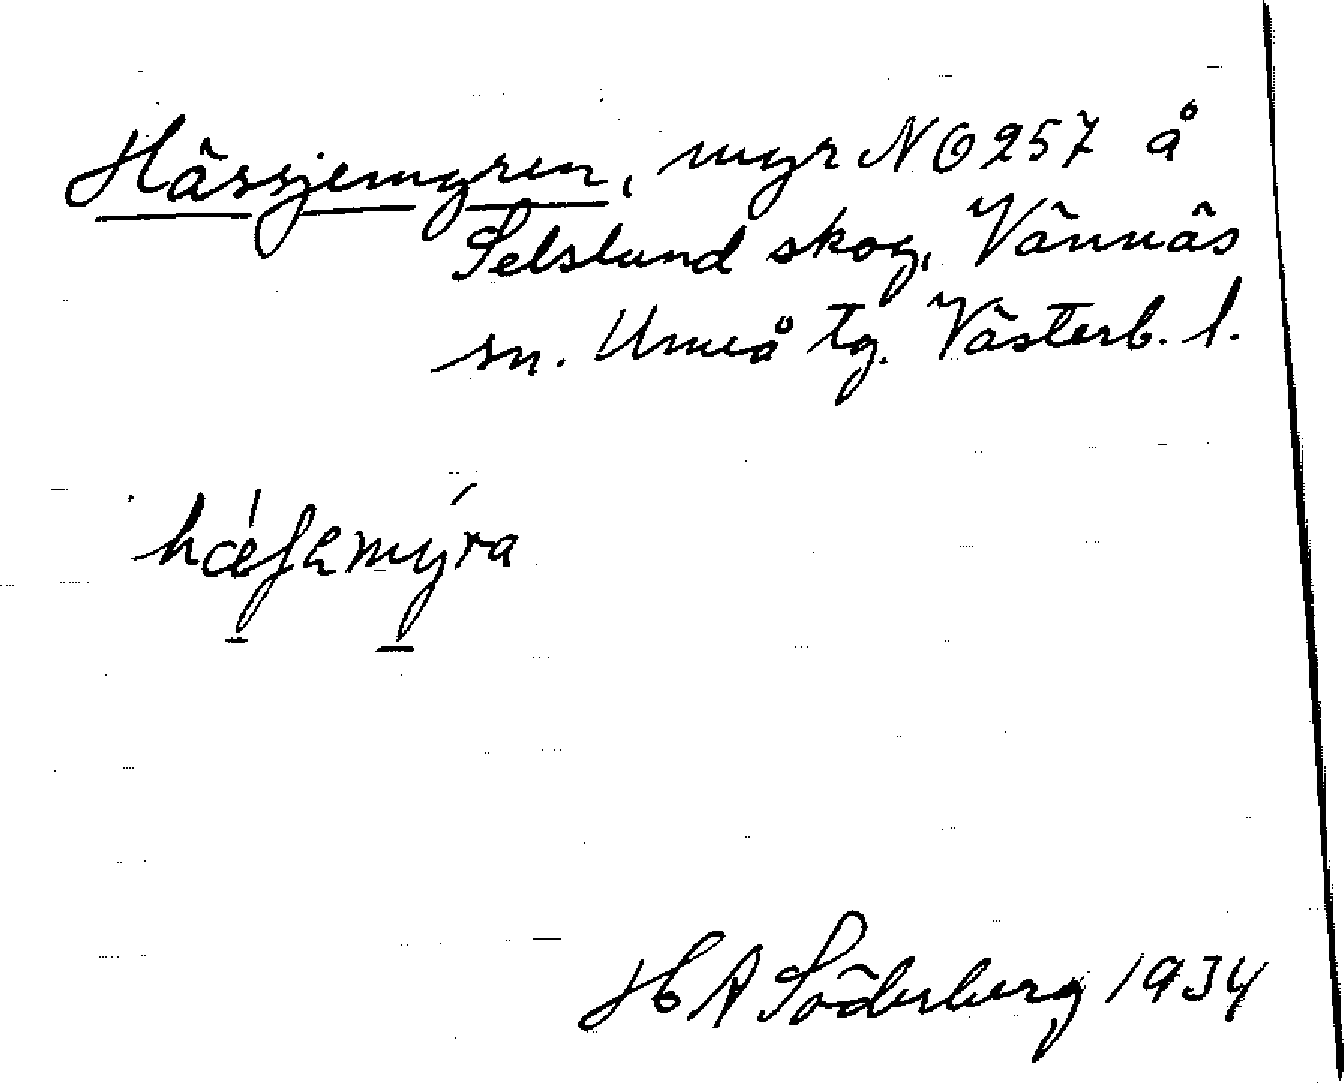 Hässjemyren, myr NO 257 å
Selslund skog, Vännäs
sn. Umeå tg. Västerb. l.
H A Söderberg 1934